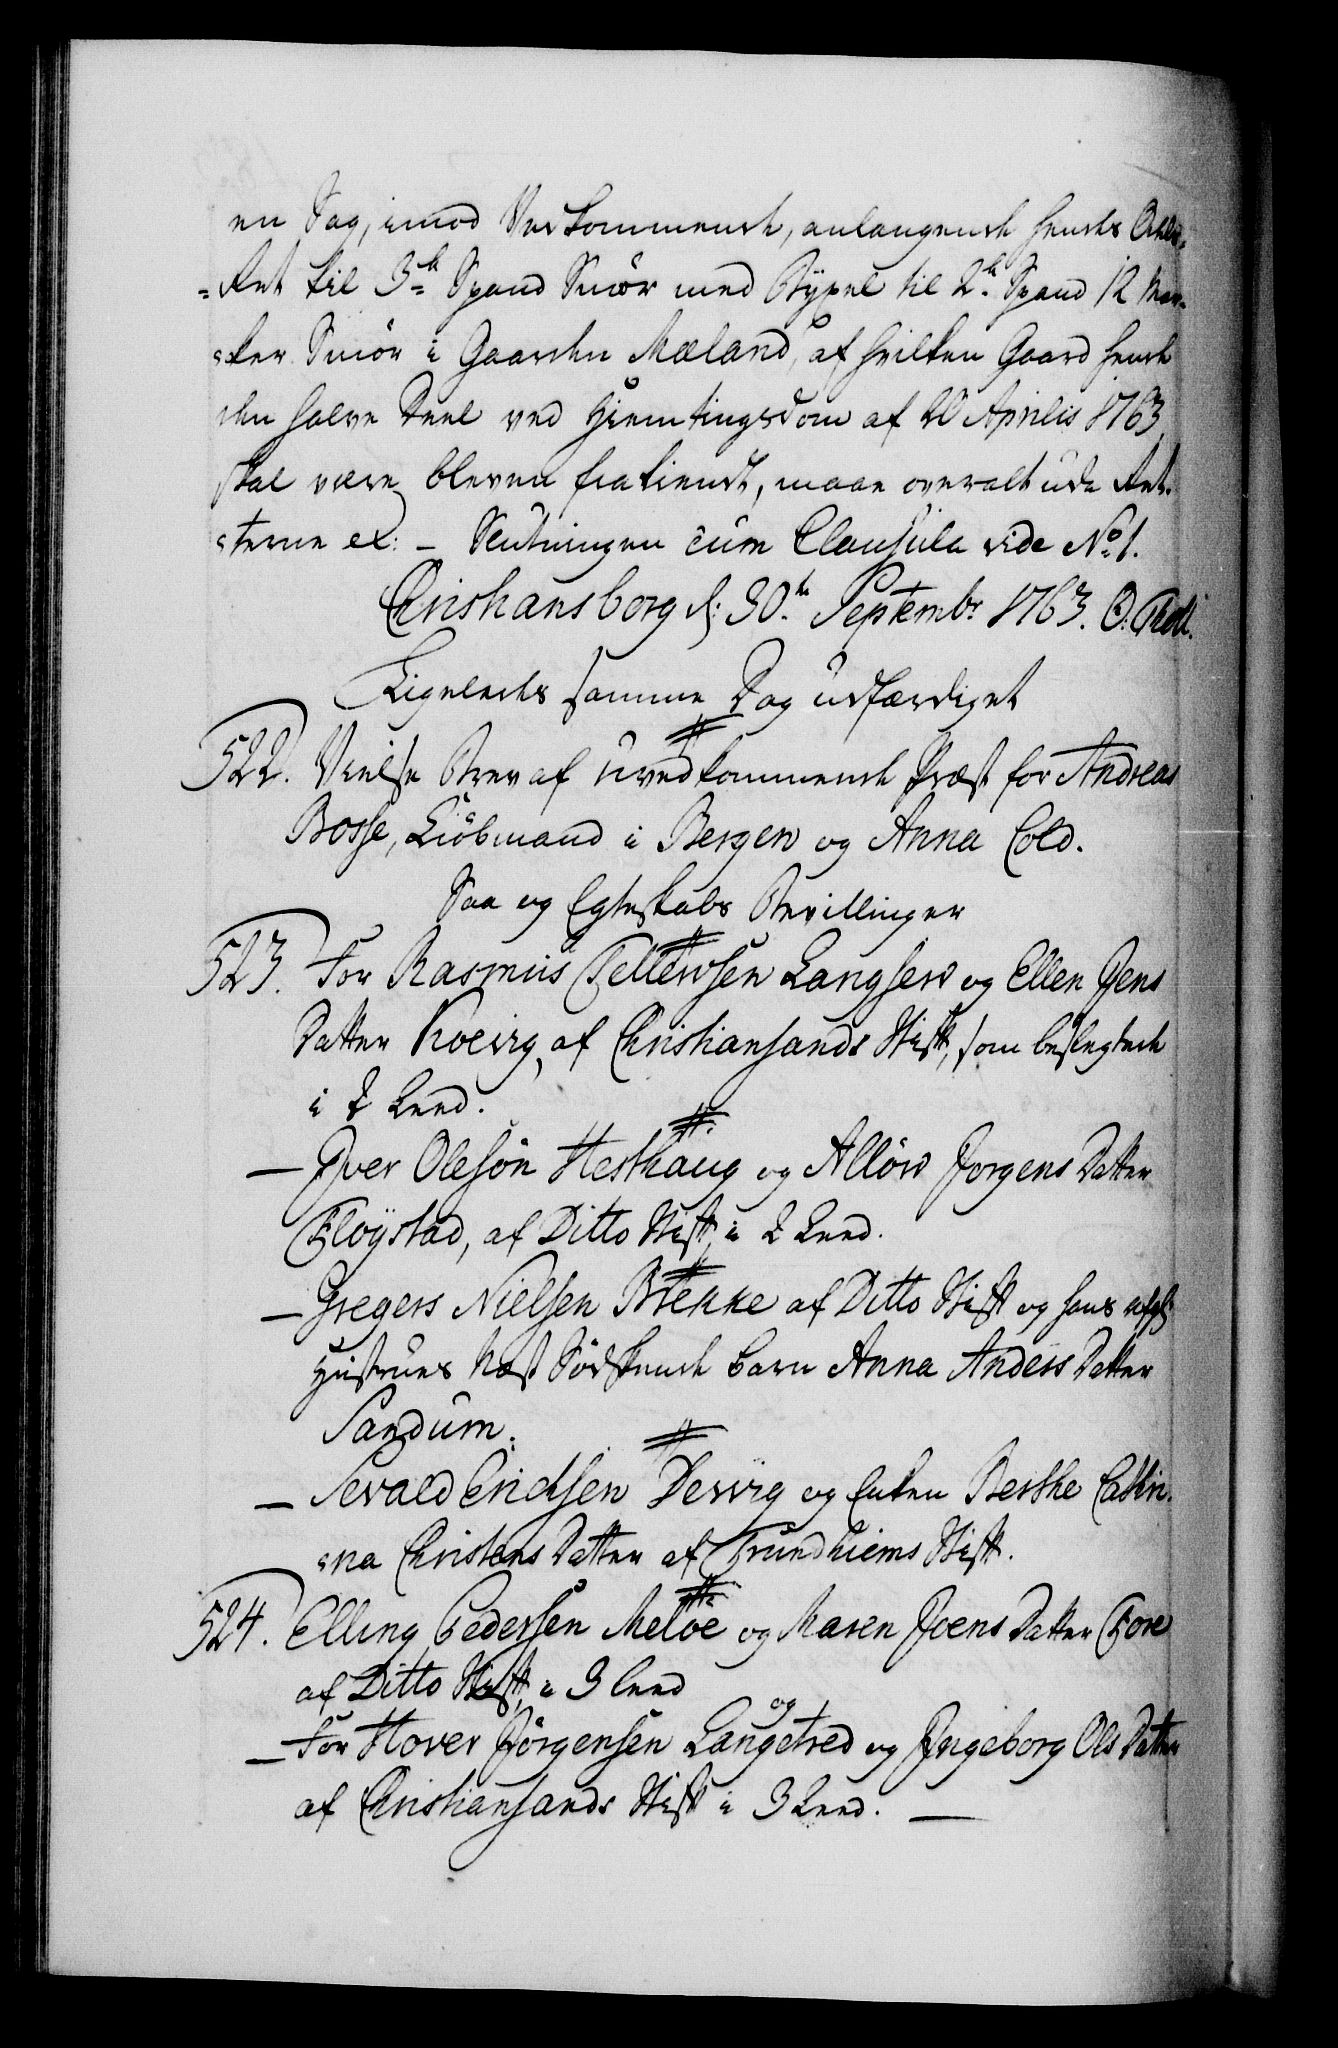 en Sag, imod Vedkommende, anlangende hendes Odels-
=Ret til 3de Spand Smör med Bÿxel til 2de Spand 12 Mar-
=ker Smör i Gaarden Mæland, af hvilken Gaard hende
den halve Deel ved Hiemtingsdom af 20 Aprilis 1763
skal være bleven frakiendt, maae overalt udi Ret-
=terne ex: – Slutningen cum Clausula vide No. 1.
Christiansborg d: 30te Septembr 1763. O: Thott.
Ligeledes samme Dag udfærdiget
522. Vielse Brev af uvedkommende Præst for Andreas
Bosse, Kiöbmand i Bergen og Anna Cold.
Saa og Egteskabs Bevillinger
523. For Rasmus Tellefsen Langsev og Ellen Jens
Datter Roevig, af Christiansands Stift, som beslegtede
i 2 Leed.
– Iver Olesön Hesthaug og Allöw Jorgens Datter
Fløÿstad, af Ditto Stift, i 2 Leed.
– Gregers Nielsen Brekke af Ditto Stift og hans afg:
Hustrues Næst Södskende barn Anna Anders Datter
Sandum.
– Sevald Erichsen Dervig og Enken Berthe Cathri-
=na Christens Datter af Trundhiems Stift.
524. Elling Pedersen Meløe og Maren Joens Datter Fore
af Ditto Stift, i 3 Leed
– For Hover Jörgensen Langetved og Ingeborg Ols Datter
af Christiansands Stift i 3 Leed. –